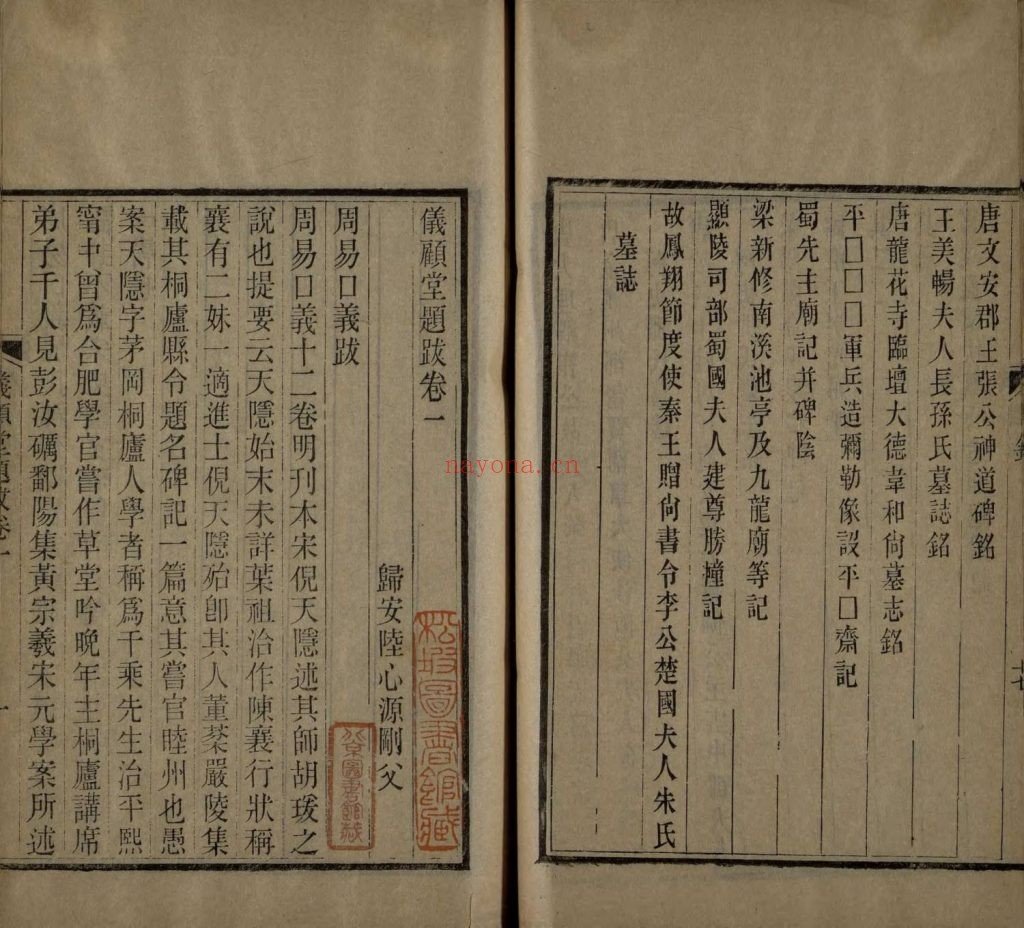 唐文安郡王張公神道碑銘
王美暢夫人長孫氏墓誌銘
唐龍花寺臨壇大德韋和尙墓志銘
平□□□軍兵造彌勒像設平□齋記
蜀先主廟記并碑陰
梁新修南溪池亭及九龍廟等記
顯陵司部蜀國夫人建尊勝撞記
故鳳翔節度使秦王贈尙書令李公楚國夫人朱氏
墓誌
儀顧堂題跋卷一
歸安陸心源剛父
周易口義跋
周易口義十二卷明刊本宋倪天隱述其師胡瑗之
說也提要云天隱始末未詳葉祖洽作陳襄行狀稱
襄有二妹一適進士倪天隱殆卽其人董棻嚴陵集
載其桐廬縣令題名碑記一篇意其嘗官睦州也愚
案天隱字茅岡桐廬人學者稱爲千乘先生治平熙
甯中曾爲合肥學官嘗作草堂吟晚年主桐廬講席
弟子千人見彭汝礪鄱陽集黃宗羲宋元學案所述
儀顧堂題跋卷一
一
松坡圖書館藏
nayona.cn